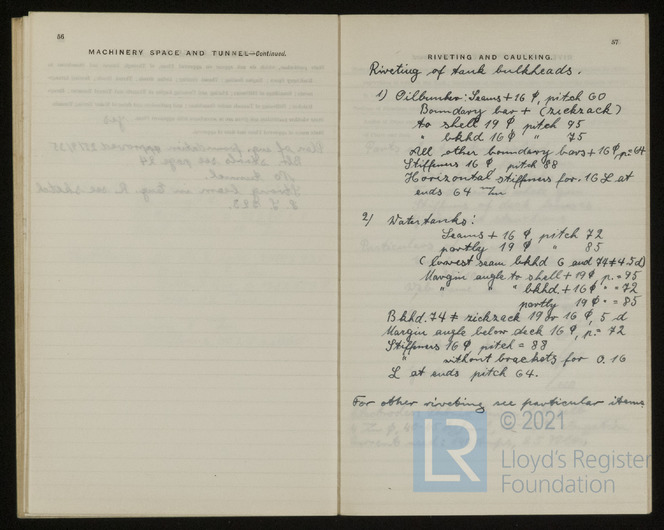 56
MACHINERY SPACE AND TUNNEL—Continued.
57
RIVETING AND CAULKING.
Riveting of tank bulkheads.
1) Oilbunker: Seams ‡ 16 φ, pitch 60
Boundary bar ‡ (zickzack)
to shell 19 φ pitch 95
" bkhd 16 φ " 75
All other boundary bars ‡ 16 φ, p = 64
Stiffeners 16 φ pitch 88
Horizontal stiffeners for. 16 L at
ends 64 m/m
2) Watertanks:
Seams ‡ 16 φ, pitch 72
partly 19 φ " 85
(lowest seam bkhd 6 and 74 ‡ 4.5 d)
Margin angle to shell ‡ 19 φ, p. = 95
" " " bkhd. ‡ 16 φ " = 72
partly 19 φ " = 85
Bkhd. 74 ‡ zickzack 19 or 16 φ, 5 d
Margin angle below deck 16 φ, p = 72
Stiffeners 16 φ pitch = 88
" without brackets for 0.16
L at ends pitch 64.
For other riveting see particular items
LR
© 2021
Lloyd's Register
Foundation